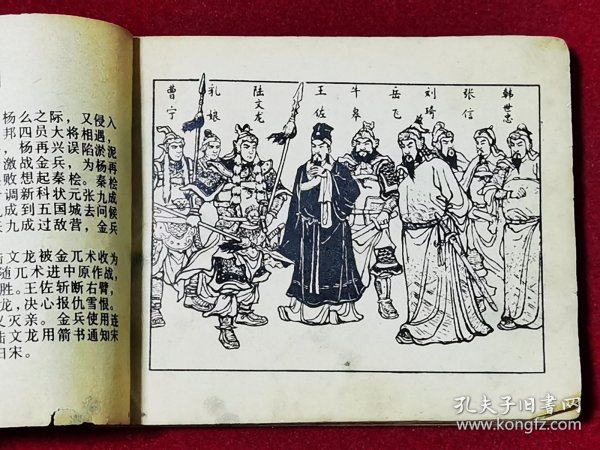 杨么之际，又侵入
邦四员大将相遇，
，杨再兴误陷淤泥
激战金兵，为杨再
败想起秦桧。秦桧
调新科状元张九成
九成到五国城去问候
张九成过敌营，金兵
陆文龙被金兀术收为
随兀术进中原作战，
胜。王佐斩断右臂，
龙，决心报仇雪恨。
义灭亲。金兵使用连
陆文龙用箭书通知宋
归宋。
曹宁
乳娘
陆文龙
王佐
牛皋
岳飞
刘琦
张信
韩世忠
孔夫子旧书网
www.kongfz.com